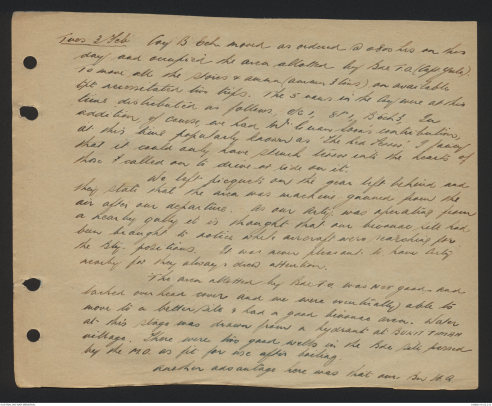 Tues 3 Feb Coy B Ech moved as ordered @ 0800 hrs on this
day and occupied the area allotted by Bde T.O. (Capt Gale).
To move all the stores & ammn on available
tpt necessitated two trips. The 5 cars in the Coy were at this
time distributed as follows,
addition, of course, we had contribution,
at this time popularly known as 'The Red Terror'. I fancy
that it could only have struck terror into the hearts of
those I called on to drive or ride on it.
We left picquets on the gear left behind and
they state that the area was machine gunned from the
air after our departure. As our Arty. was operating from
a nearby gully it is thought that our bivouac site had
been brought to notice while aircraft were searching for
the Bty. positions. It was never pleasant to have Arty
nearby for they always drew attention.
The area allotted by Bde T.O. was not good and
lacked overhead cover and we were eventually able to
move to a better site & had a good bivouac area. Water
at this stage was drawn from a hydrant at BUKIT TIMAH
village. There were two good wells in the Bde site passed
by the M.O. as fit for use after boiling.
Another advantage here was that our Bn H.Q.